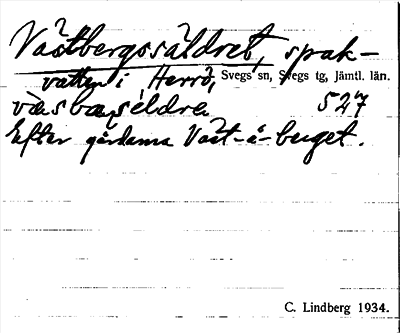 Västbergssäldret, spak-
vatten i Herrö, Svegs sn, Svegs tg, Jämtl. län.
väsbaséldra 527
Efter gårdarna Väst-å-buget.
C. Lindberg 1934.